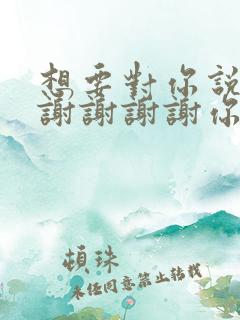 想要對你說
謝謝謝謝你
頓珠
未任同意禁止轉載